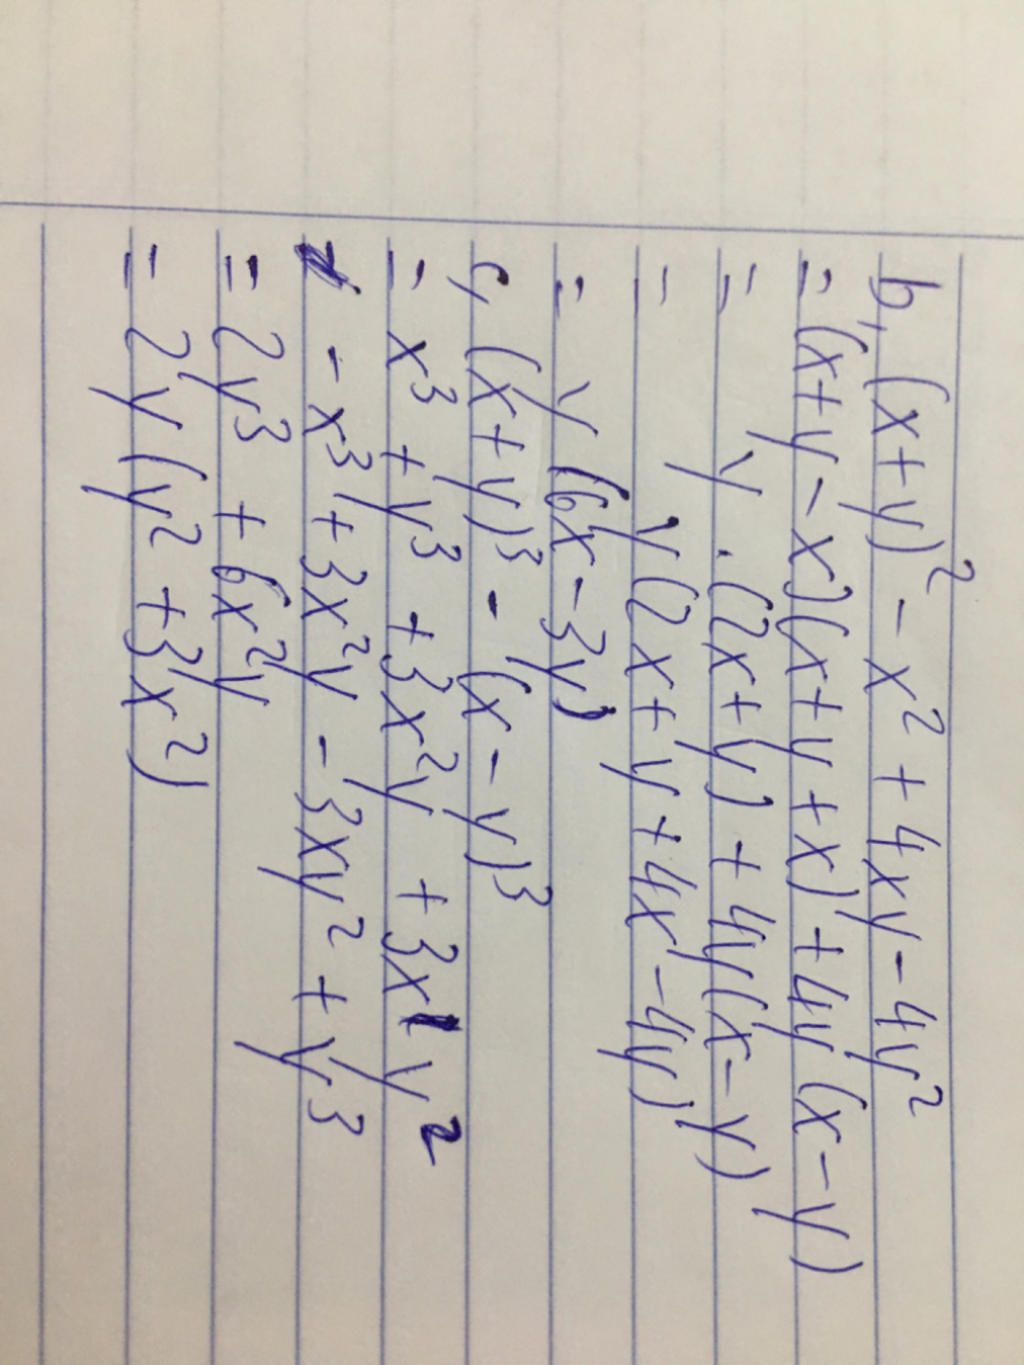 b, (x+y)² - x² + 4xy - 4y²
= (x+y-x)(x+y+x) + 4y(x-y)
= y.(2x+y) + 4y(x-y)
= y(2x+y+4x-4y)
= y(6x-3y)
c, (x+y)³ - (x-y)³
= x³ + y³ + 3x²y + 3xy²
- x³ + 3x²y - 3xy² + y³
= 2y³ + 6x²y
= 2y(y² + 3x²)